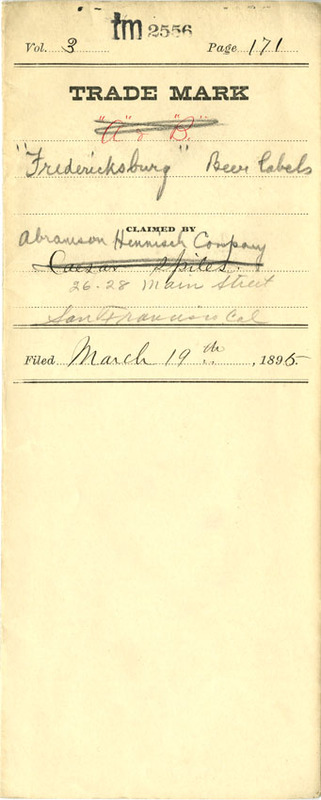 tm 2556
Vol. 3 Page 171
TRADE MARK
"A" & "B"
"Fredericksburg" Beer labels
CLAIMED BY
Abramson Hennisch Company
Caesar Spiles.
26-28 Main Street
San Francisco Cal
Filed March 19th, 1895.